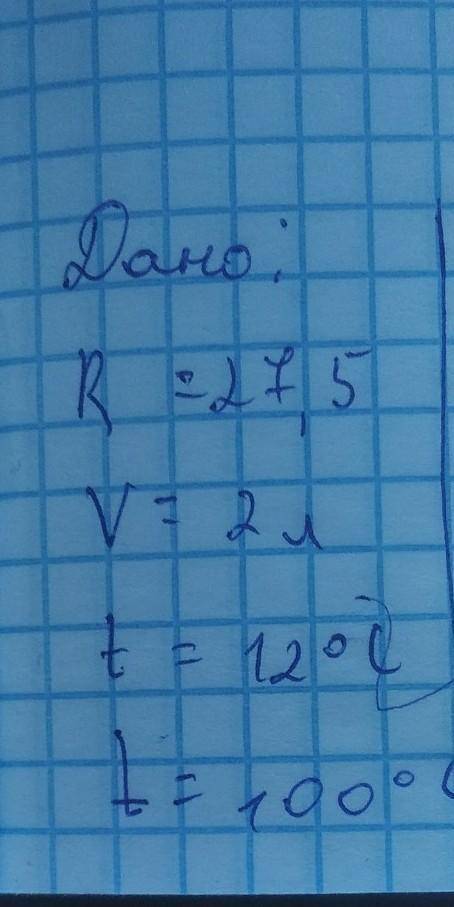 Дано:
R = 27,5
V = 2 л
t = 12°C
t = 100°C